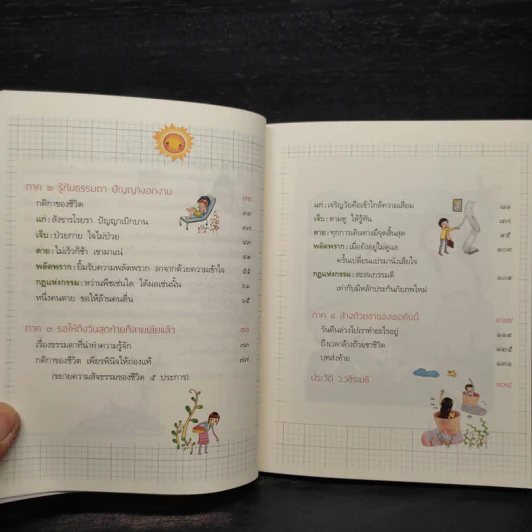 ภาค ๒ รู้ทันธรรมดา ปัญญางอกงาม
กติกาของชีวิต
แก่ : สังขารโรยรา ปัญญาเบิกบาน
เจ็บ : ป่วยกาย ใจไม่ป่วย
ตาย : ไม่เร็วก็ช้า เขามาแน่
พลัดพราก : ยิ้มรับความพลัดพราก ลาจากด้วยความเข้าใจ
กฎแห่งกรรม : หว่านพืชเช่นใด ได้ผลเช่นนั้น
หนึ่งคนตาย ขอให้ล้านคนตื่น
ภาค ๓ รอให้ถึงวันสุดท้ายก็สายเสียแล้ว
เรื่องธรรมดาที่น่าทำความรู้จัก ๗๓
กติกาของชีวิต เพียรพินิจให้ถ่องแท้ ๗๗
(ขยายความสัจธรรมของชีวิต ๕ ประการ)
แก่ : เจริญวัยคือเข้าใกล้ความเสื่อม
เจ็บ : ตามดู ให้รู้ทัน
ตาย : ทุกการเดินทางมีจุดสิ้นสุด
พลัดพราก : เมื่อยังอยู่ไม่ดูแล
ครั้นเปลี่ยนแปรมานั่งเสียใจ
กฎแห่งกรรม : สะสมกรรมดี ๑๐๙
เท่ากับมีหลักประกันภัยภพใหม่
ภาค ๔ ล้างถ้วยชาของเธอคืนนี้ ๑๑๗
วันคืนล่วงไปเราทำอะไรอยู่
ถึงเวลาล้างถ้วยชาชีวิต ๑๒๕
บทส่งท้าย ๑๓๑
ประวัติ ว.วชิรเมธี ๑๓๔